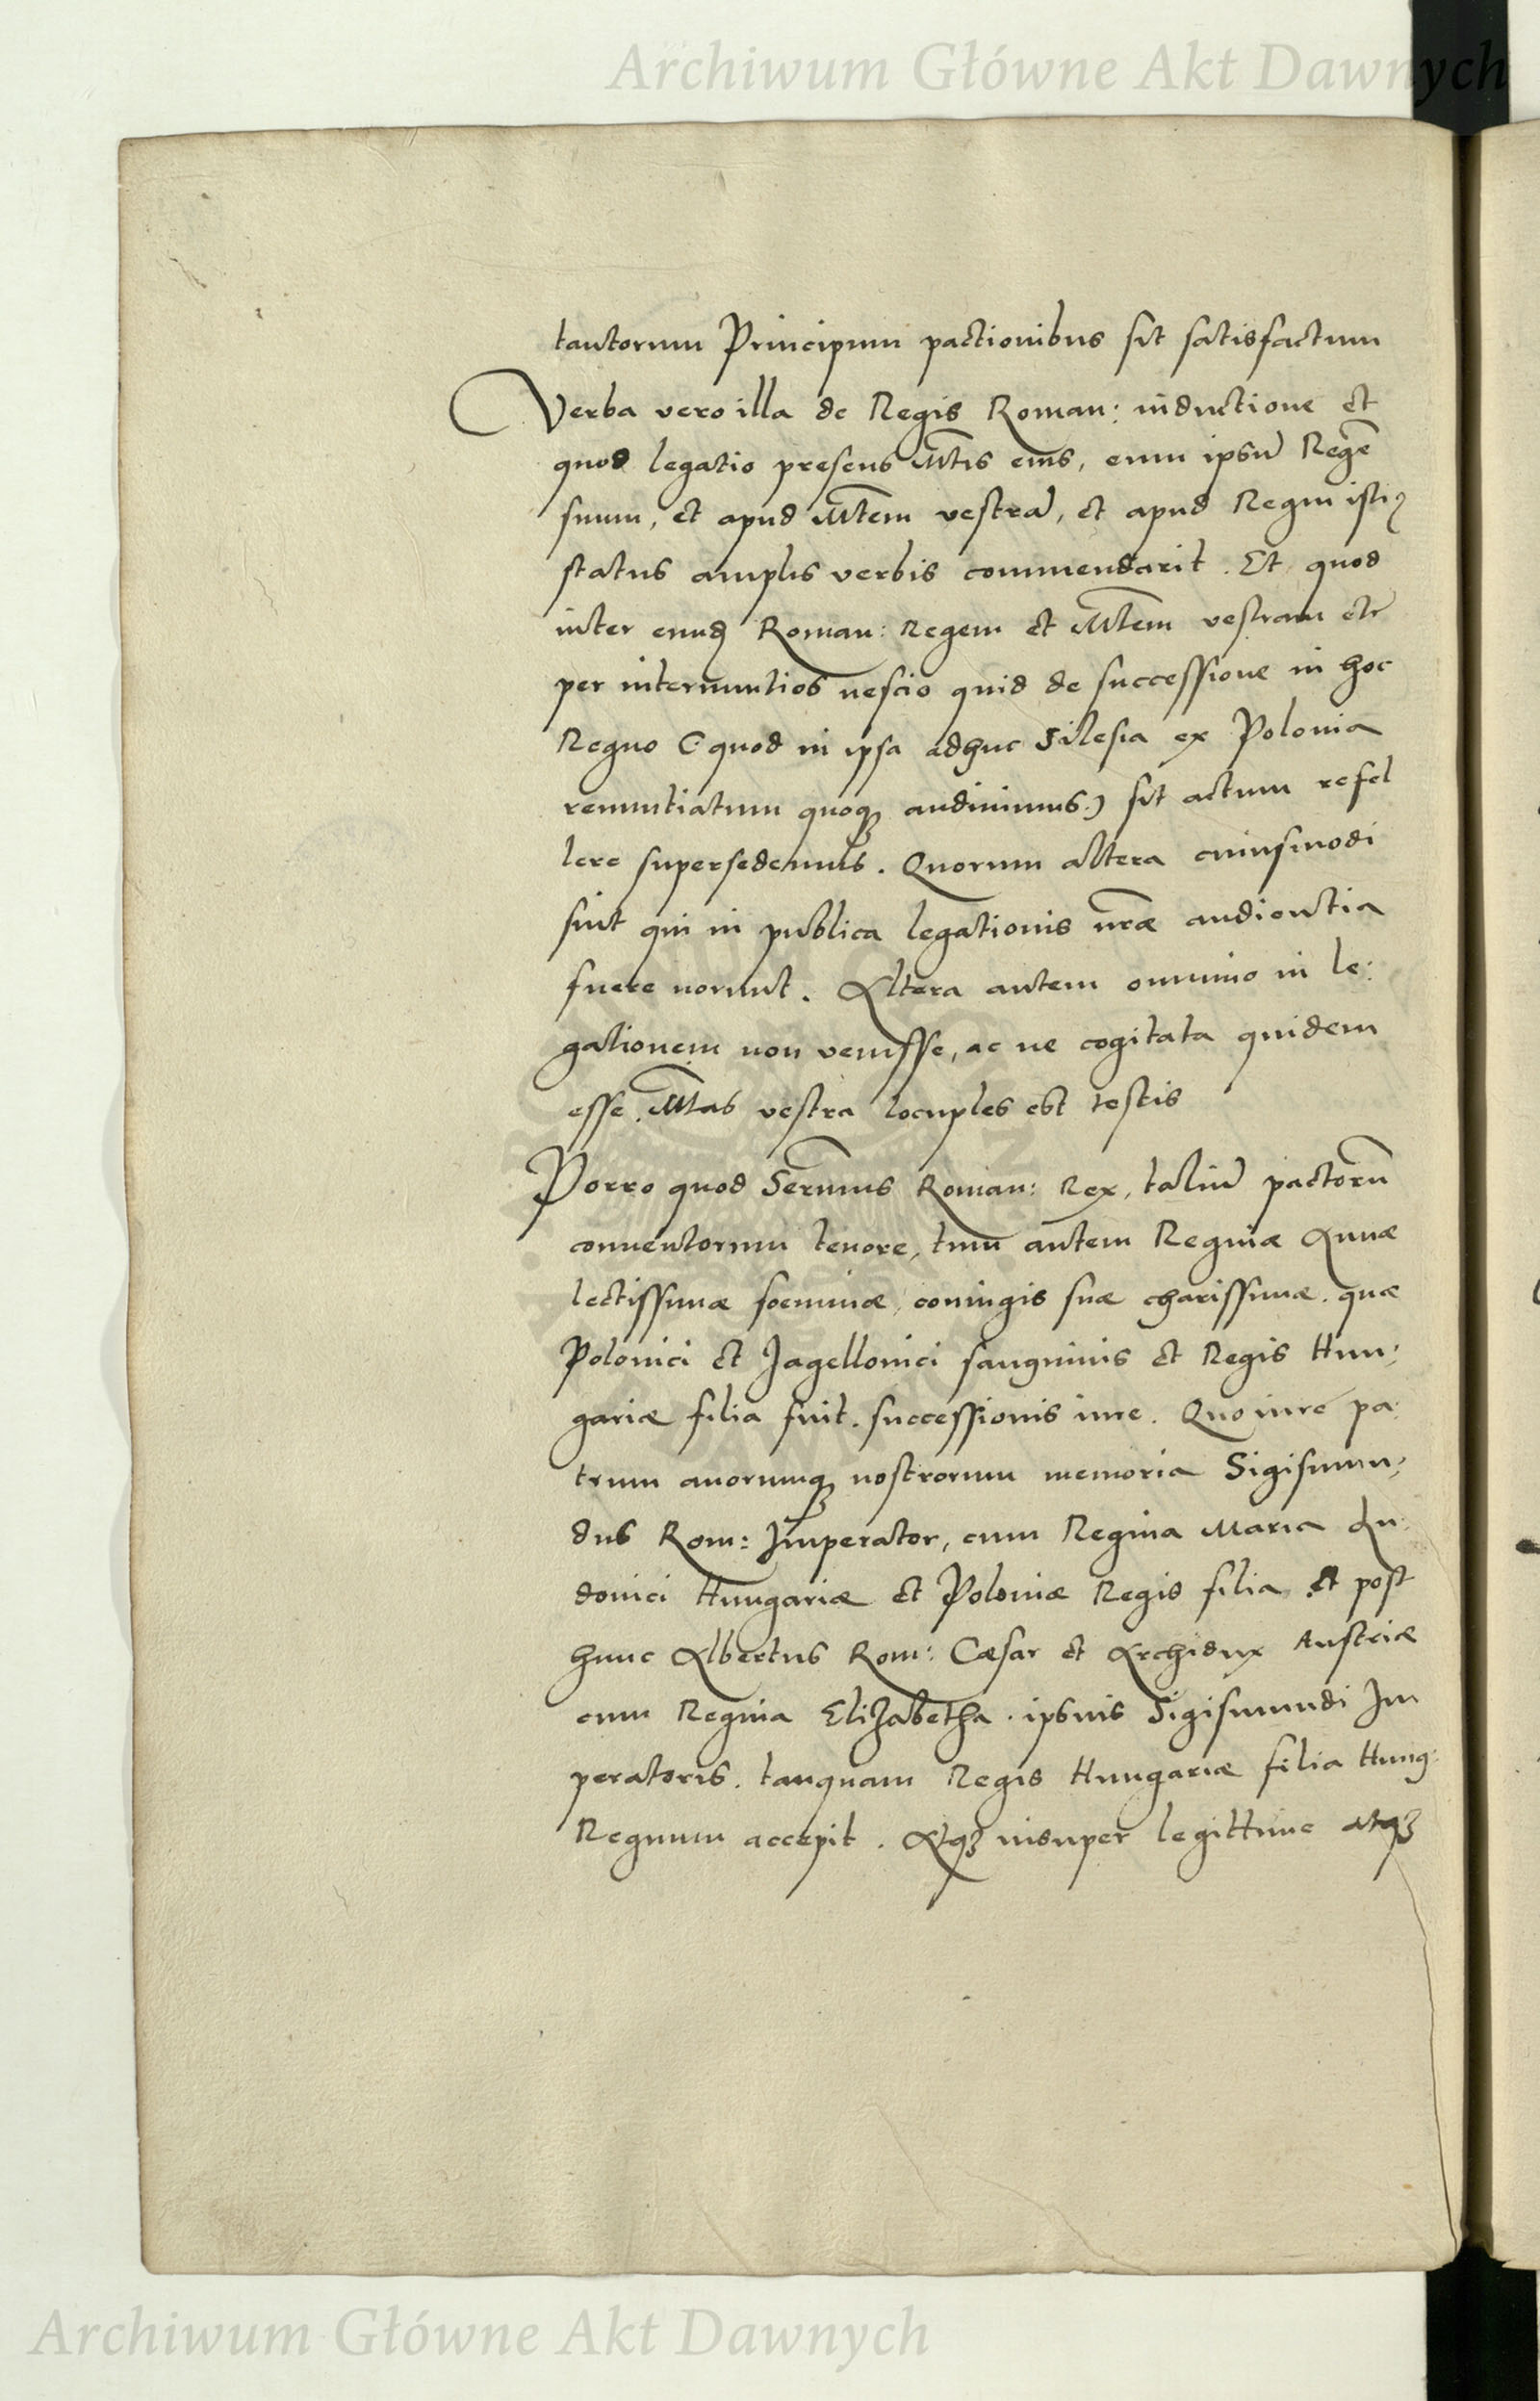 Archiwum Główne Akt Dawnych
tantorum Principum pactionibus sit satisfactum
Verba vero illa de Regis Roman: inductione et
quod legatio presens Mtis eius, eum ipsū Regē
suum, et apud Mtem vestrā, et apud Regni isti9
status amplis verbis commendarit. Et quod
inter eundē Roman: Regem et Mtem vestram etc
per internuntios nescio quid de successione in hoc
Regno (quod in ipsa adhuc Silesia ex Polonia
renuntiatum quoq3 audiuimus.) sit actum refel
lere supersedemus. Quorum altera cuiusmodi
sint qui in publica legationis nr̄æ audientia
fuere norunt. Altera autem omnino in le:
gationem non venisse, ac ne cogitata quidem
esse. Mtas vestra locuples est testis
Porro quod Sermus Roman: Rex, taliū pactorū
conuentorum tenore, tum autem Reginæ Annæ
lectissimæ foeminæ, coniugis suæ charissimæ. quæ
Polonici et Jagellonici sanguinis et Regis Hun:
gariæ filia fuit. successionis iure. Quo iure pa:
trum auorumq3 nostrorum memoria Sigismun:
dus Rom: Imperator, cum Regina Maria Lu:
douici Hungariæ et Poloniæ Regis filia et post
hunc Albertus Rom: Cæsar et Archidux Austriæ
cum Regina Elizabetha. ipsius Sigismundi Im
peratoris. tanquam Regis Hungariæ filia Hung:
Regnum accepit. Atq3 insuper legittime atq3
Archiwum Główne Akt Dawnych